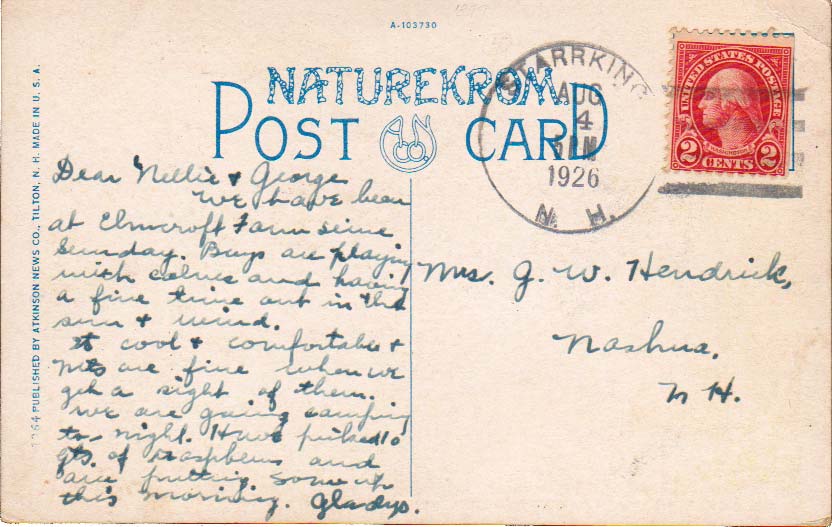 A-103730
NATUREKROM
POST CARD
ANCO.
STARR KING
AUG
4
AM
1926
N. H.
UNITED STATES POSTAGE
WASHINGTON
2 CENTS 2
1264 PUBLISHED BY ATKINSON NEWS CO., TILTON, N. H. MADE IN U. S. A.
Dear Nellie & George
We have been
at Elmcroft Farm seine
Sunday. Boys are playing
with calves and having
a fine time out in the
sun & wind.
It cool & comfortable &
Mts are fine when we
get a sight of them.
We are going camping
to-night. Have picked 10
qts. of raspberries and
are putting some up
this morning. Gladys.
Mrs. G. W. Hendrick,
Nashua,
N H.